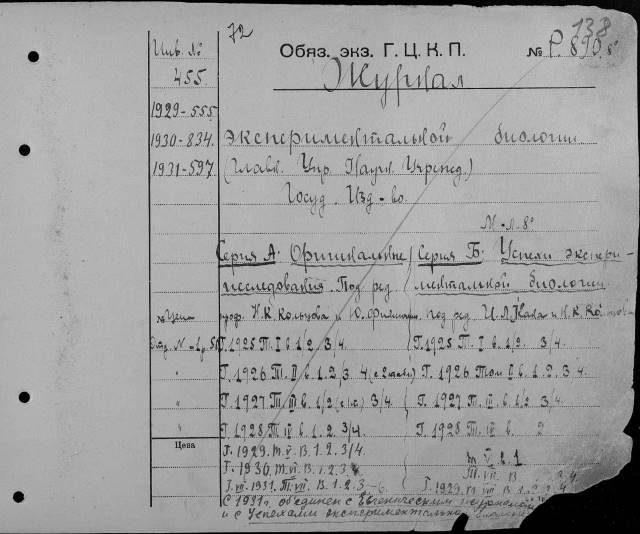 72
138
Обяз. экз. Г. Ц. К. П. № Р. 890. 8°
Инв. №
Журнал
455.
1929-555
1930-834. экспериментальной биологии
1931-597. (Главн. Упр. Научн. Учрежд.)
Госуд. Изд-во.
М-Л. 8°
Серия А: Оригинальные Серия Б: Успехи экспери-
исследования. Под ред. ментальной биологии
Цена проф. Н. К. Кольцова и Ю. под ред. и Н. К.
Отд. № Г. 1925 Т. I в. 1/2 3/4. Г. 1925 Т. I в. 1/2. 3/4.
" Г. 1926 Т. II в. 1. 2. 3. 4 Г. 1926 Том II в. 1. 2. 3. 4
" Г. 1927 Т. III в. 1/2 3/4 Г. 1927 Т. III в. 1/2 3/4.
" Г. 1928 Т. IV в. 1. 2. 3/4. Г. 1928 Т. IV в. 2
Цена Г. 1929. т. V. В. 1. 2. 3/4 т. V в. 1
Г. 1930. т. VI. В. 1. 2. 3/4 Т. VI. В
1931. Т. VII. В. 1. 2. 3-6. Г. 1929
С 1931г. объединен с Евгеническим журналом
и с Успехами экспериментальной биологии